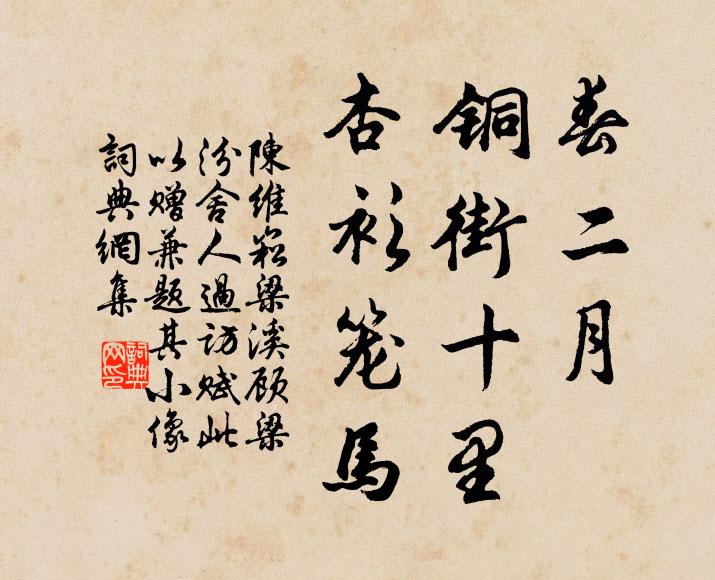 春二月
銅街十里
杏衫笼馬
陳維崧梁溪顾梁
汾舍人過訪赋此
以赠兼題其小像
詞典網集
詞典网印